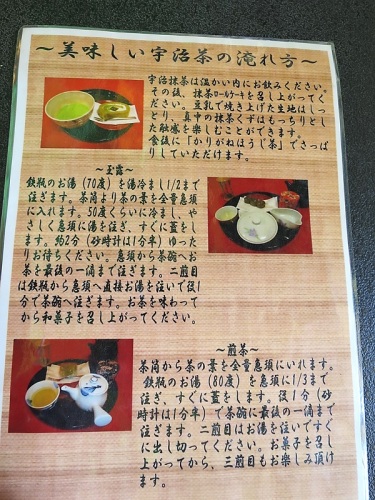 ～美味しい宇治茶の淹れ方～
宇治抹茶は温かい内にお飲みください。
その後、抹茶ロールケーキを召し上がってく
ださい。豆乳で焼き上げた生地はしっ
とり、真中の抹茶くずはもっちりとし
た触感を楽しむことができます。
食後に「かりがねほうじ茶」でさっぱ
りしていただけます。
～玉露～
鉄瓶のお湯（70度）を湯冷まし1/2まで
注ぎます。茶筒より茶の葉を全量急須
に入れます。50度くらいに冷まし、や
さしく急須に湯を注ぎ、すぐに蓋をし
ます。約2分（砂時計は1分半）ゆった
りお待ちください。急須から茶碗へお
茶を最後の一滴まで注ぎます。二煎目
は鉄瓶から急須へ直接お湯を注いで後1
分で茶碗へ注ぎます。お茶を味わって
から和菓子を召し上がってください。
～煎茶～
茶筒から茶の葉を全量急須にいれます。
鉄瓶のお湯（80度）を急須に1/3まで
注ぎ、すぐに蓋をします。後1分（砂
時計は1分半）で茶碗に最後の一滴まで
注ぎます。二煎目はお湯を注いですぐ
に出し切ってください。お菓子を召し
上がってから、三煎目もお楽しみ頂け
ます。